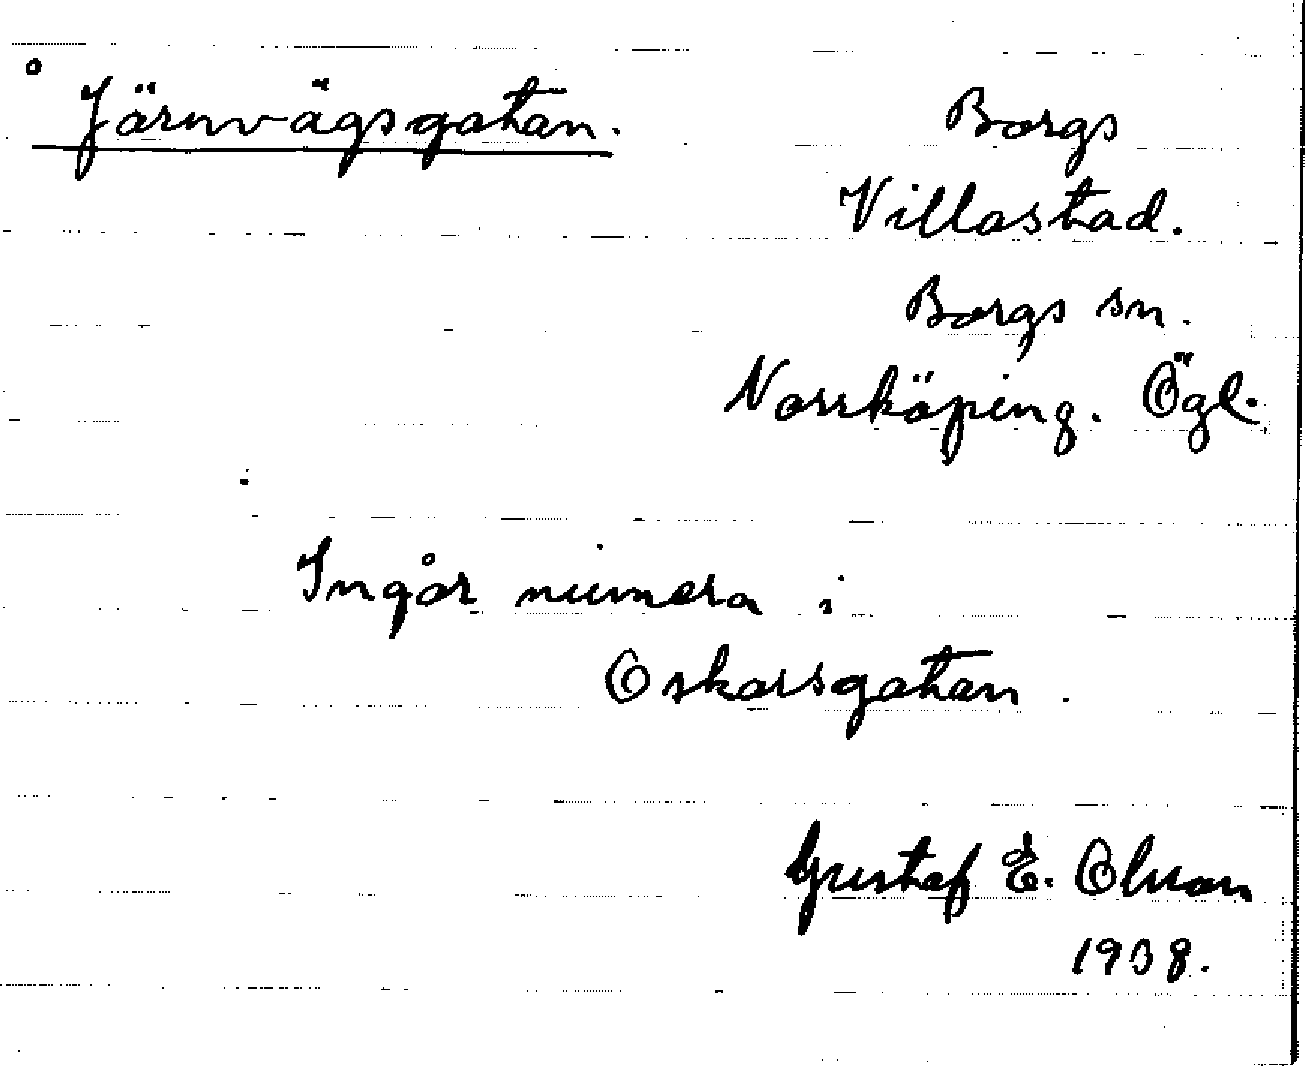 ° Järnvägsgatan.
Borgs
Villastad.
Borgs sn.
Norrköping. Ögl.
Ingår numera i
Oskarsgatan.
Gustaf E. Olsson
1938.